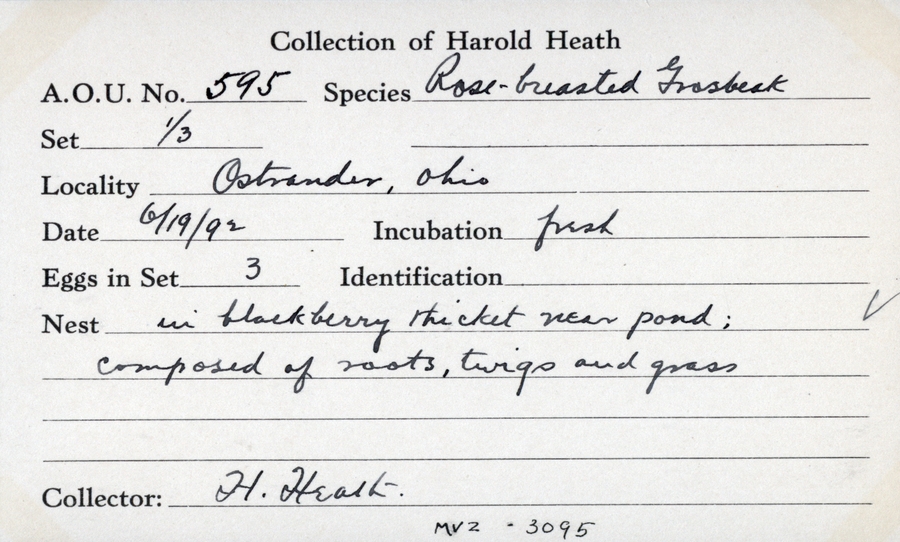 Collection of Harold Heath
A.O.U. No. 595 Species Rose-breasted Grosbeak
Set 1/3
Locality Ostrander, Ohio
Date 6/19/92 Incubation fresh
Eggs in Set 3 Identification
Nest in blackberry thicket near pond;
composed of roots, twigs and grass
Collector: H. Heath.
MVZ - 3095